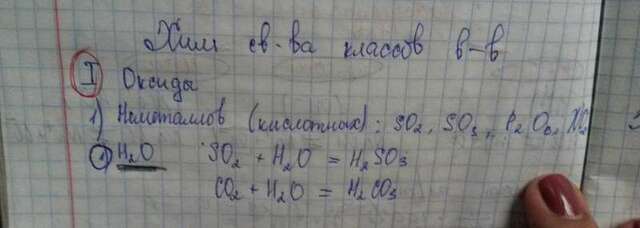 Хим св-ва классов в-в
I Оксиды
1) Неметаллов (кислотных): SO2, SO3, P2O5,
① H2O SO2 + H2O = H2SO3
CO2 + H2O = H2CO3